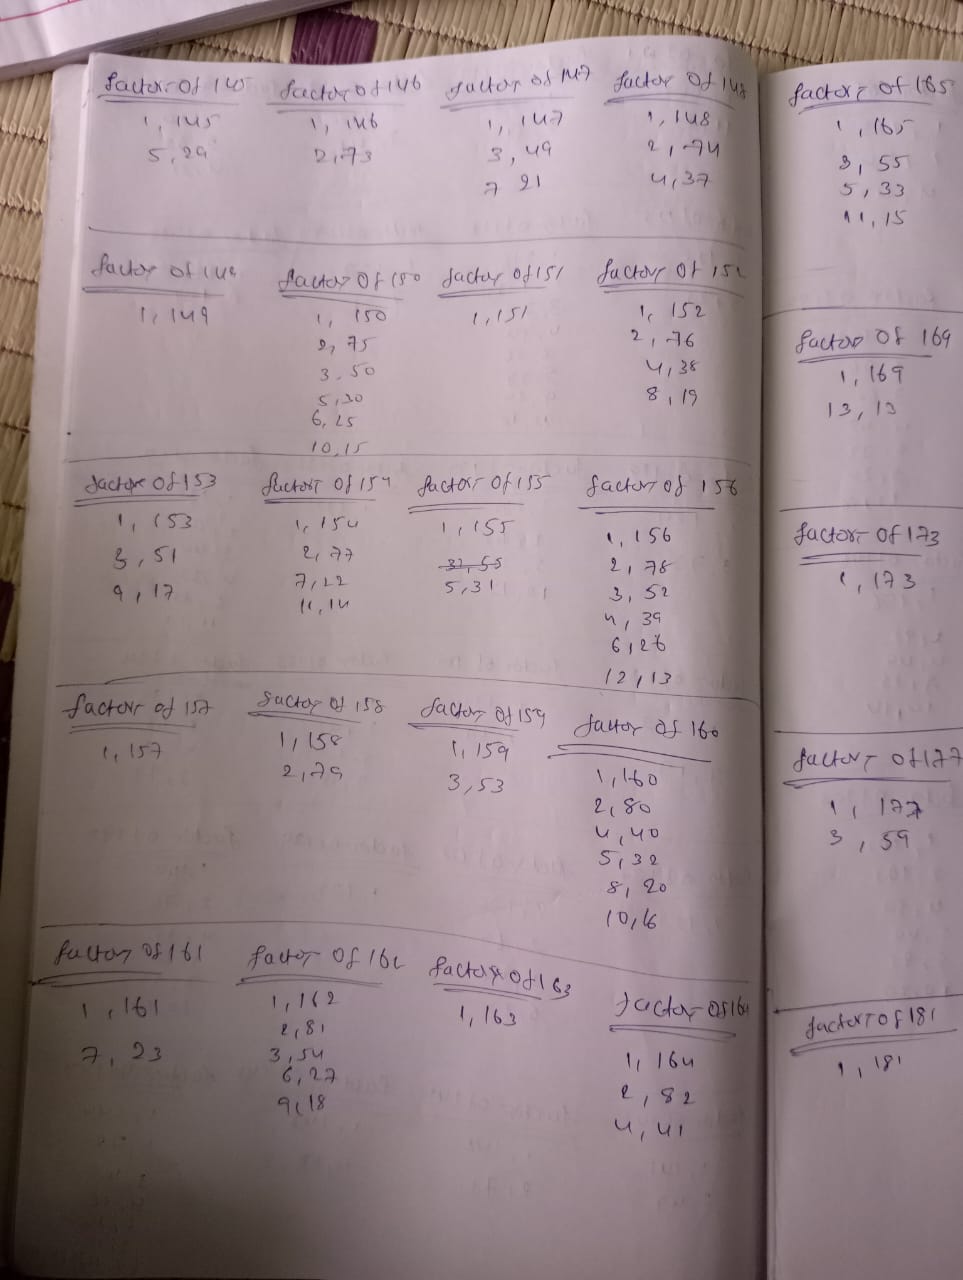 factor of 145
1, 145
5, 29
factor of 146
1, 146
2, 73
factor of 147
1, 147
3, 49
7 21
factor of 148
1, 148
2, 74
4, 37
factor of 149
1, 149
factor of 150
1, 150
2, 75
3. 50
5, 30
6, 25
10, 15
factor of 151
1, 151
factor of 152
1, 152
2, 76
4, 38
8, 19
factor of 153
1, 153
3, 51
9, 17
factor of 154
1, 154
2, 77
7, 22
11, 14
factor of 155
1, 155
31, 55
5, 31
factor of 156
1, 156
2, 78
3, 52
4, 39
6, 26
12, 13
factor of 157
1, 157
factor of 158
1, 158
2, 79
factor of 159
1, 159
3, 53
factor of 160
1, 160
2, 80
4, 40
5, 32
8, 20
10, 16
factor of 161
1, 161
7, 23
factor of 162
1, 162
2, 81
3, 54
6, 27
9, 18
factor of 163
1, 163
factor of 164
1, 164
2, 82
4, 41
factor of 165
1, 165
3, 55
5, 33
11, 15
factor of 169
1, 169
13, 13
factor of 173
1, 173
factor of 177
1, 177
3, 59
factor of 181
1, 181